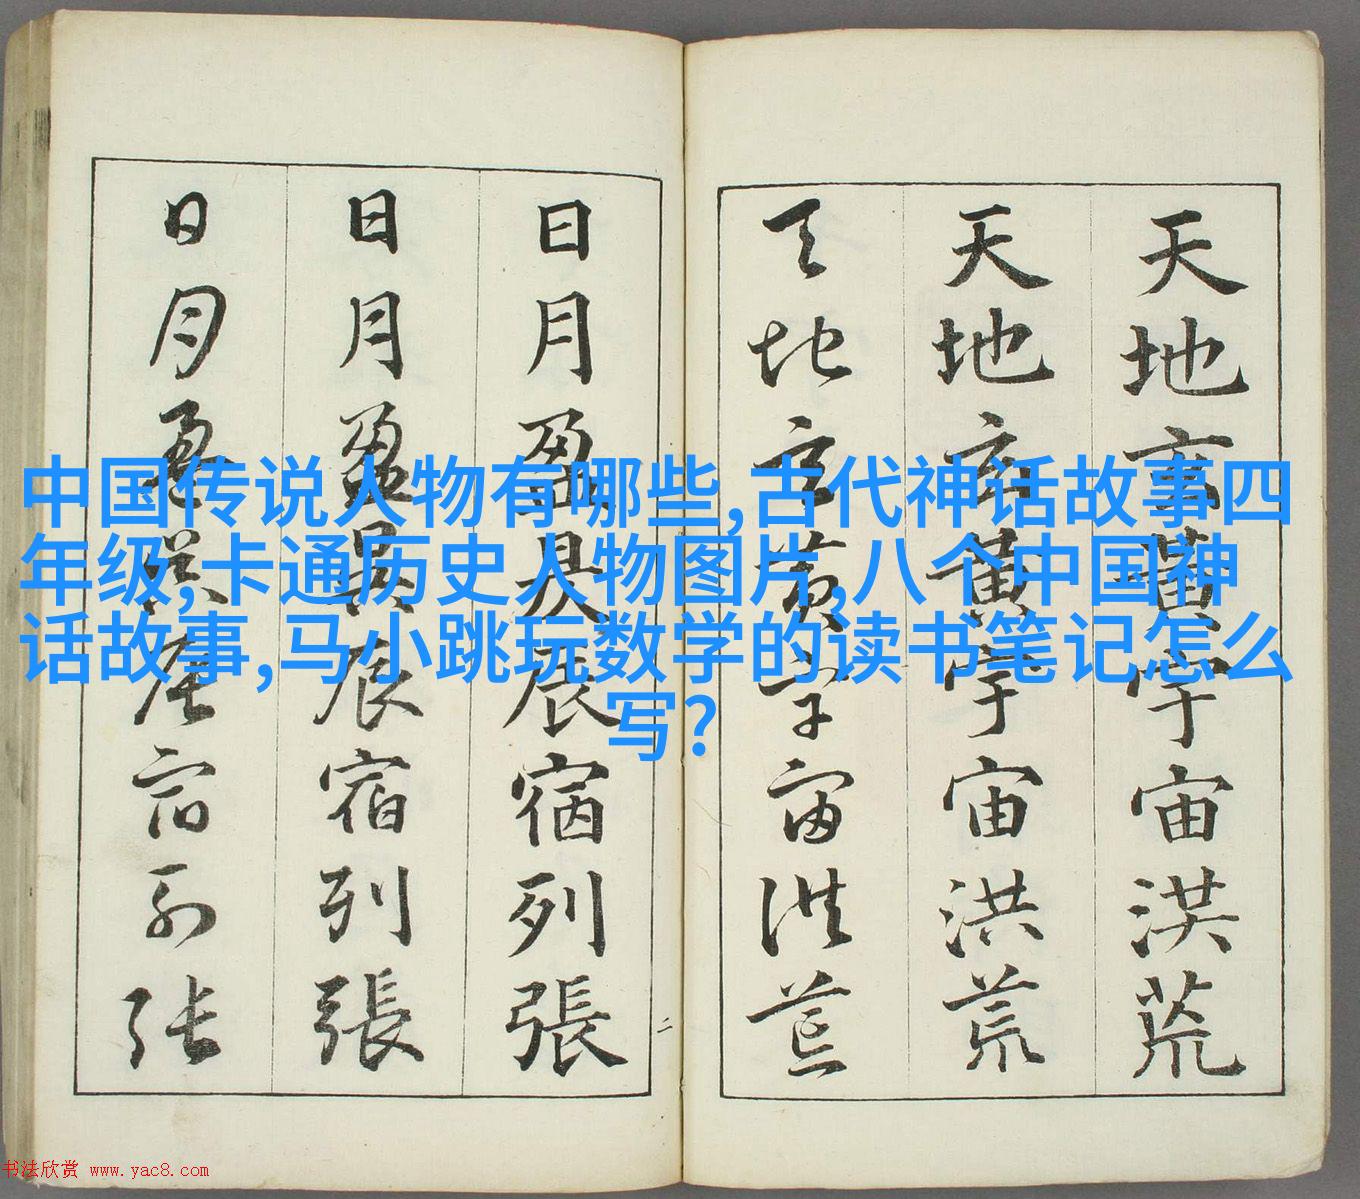 天地玄黃宇宙洪荒
天地玄黃宇宙洪荒
天地玄黃宇宙洪荒
日月盈昃辰宿列張
日月盈昃辰宿列張
日月盈昃辰宿列張
二
中国传说人物有哪些,古代神话故事四
年级,卡通历史人物图片,八个中国神
话故事,马小跳玩数学的读书笔记怎么
写?
书法欣赏 www.yac8.com